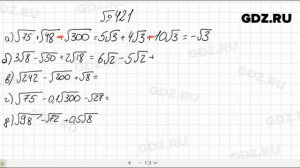 GDZ.RU
№421
а) √75 + √48 - √300 = 5√3 + 4√3 - 10√3 = -√3
б) 3√8 - √50 + 2√18 = 6√2 - 5√2 +
в) √242 - √200 + √8 =
г) √75 - 0,1√300 - √27 =
д) √98 - √72 + 0,5√8
GDZ.RU